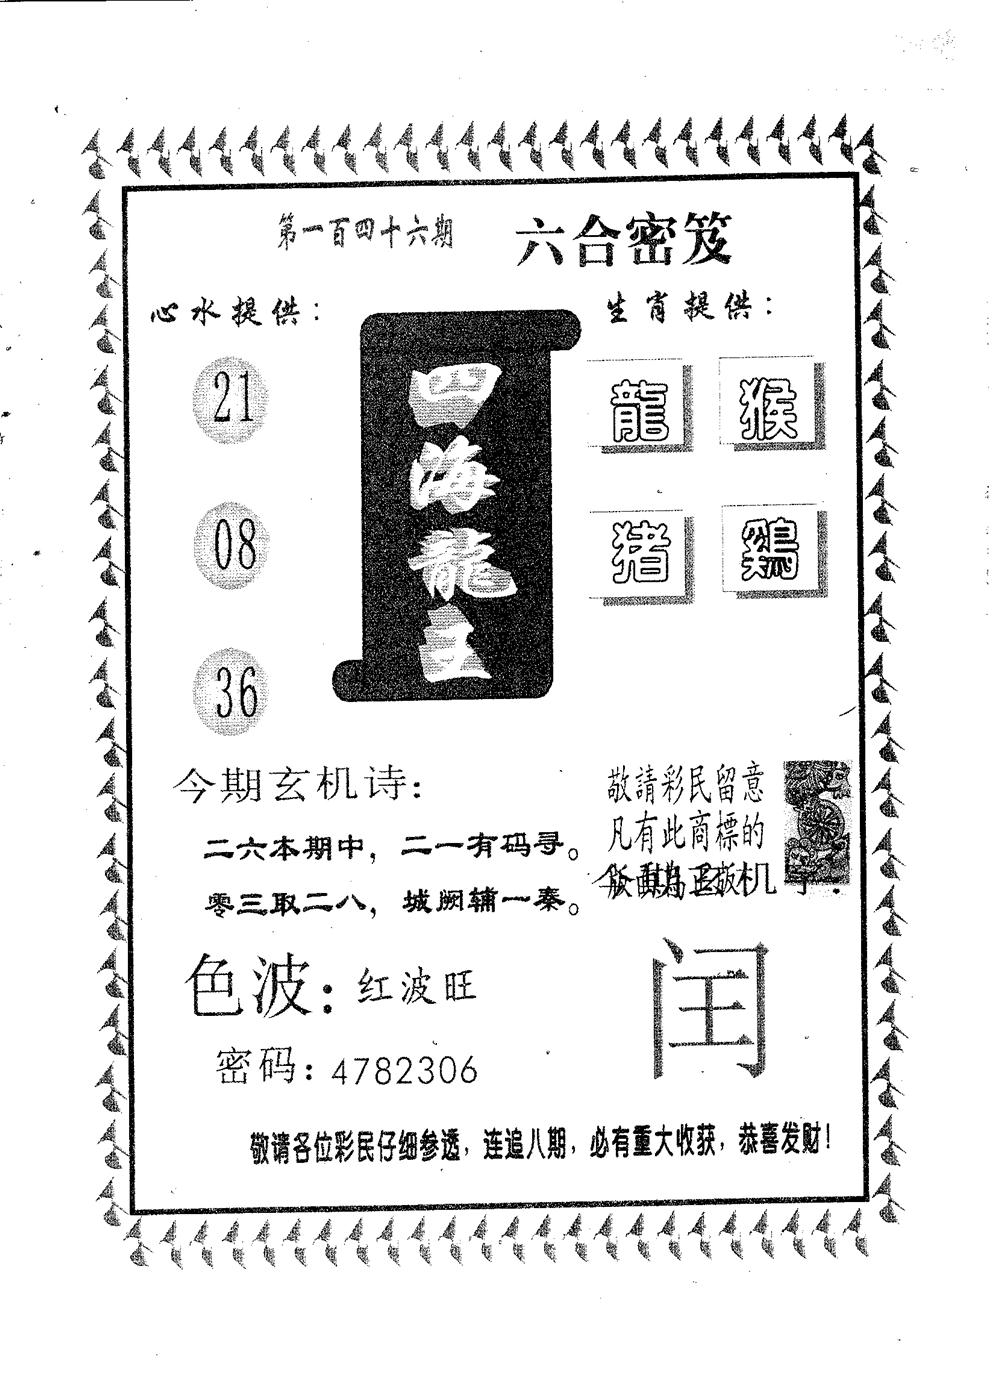 第一百四十六期 六合密笈
心水提供：
生肖提供：
21
08
36
四海龍王
龍 猴
猪 鷄
今期玄机诗：
二六本期中，二一有码寻。
零三取二八，城阙辅一秦。
敬請彩民留意
凡有此商標的
色波：红波旺
密码：4782306
闰
敬请各位彩民仔细参透，连追八期，必有重大收获，恭喜发财！